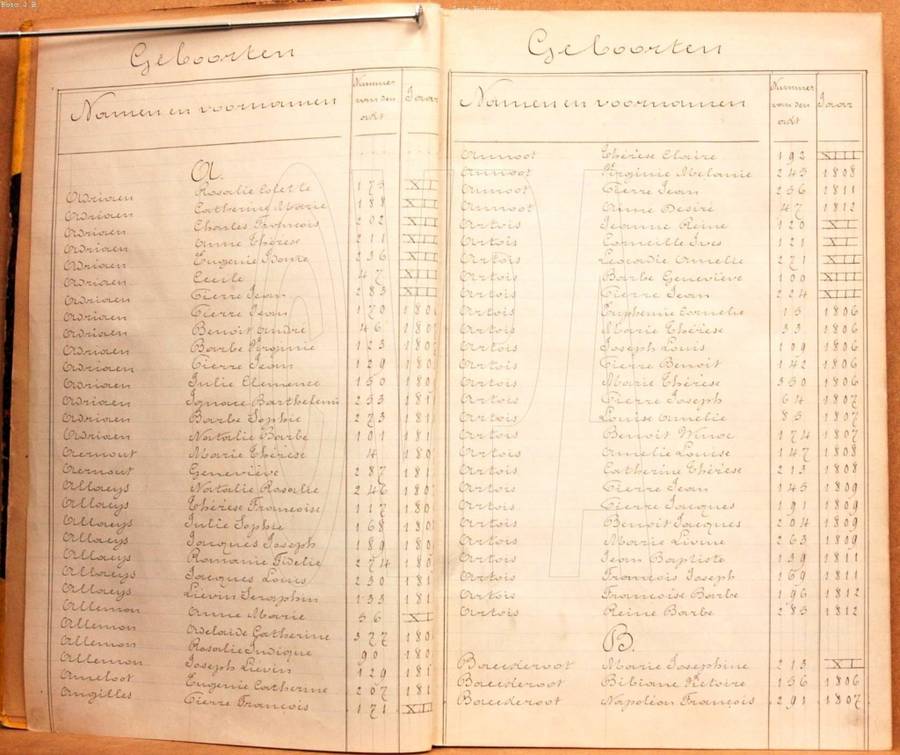 Geboorten
Namen en voornamen Nummer van den akt Jaar
A.
Adriaen Rosalie Colette 173 XII
Adriaen Catherine Marie 188 XII
Adriaen Charles François 202 XII
Adriaen Anne Thérèse 211 XII
Adriaen Eugenie 236 XII
Adriaen Cecile 47 XIII
Adriaen Pierre Jean 283 XIII
Adriaen Pierre Jean 170 180
Adriaen Benoit André 46 180
Adriaen Barbe Virginie 123 180
Adriaen Pierre Jean 129 180
Adriaen Julie Clemence 150 180
Adriaen Ignace Barthelemi 253 181
Adriaen Barbe Sophie 273 181
Adriaen Natalie Barbe 101 181
Aernout Marie Thérèse 4 180
Aernout Geneviève 287 181
Allaeys Natalie Rosalie 246 180
Allaeys Thérèse Françoise 117 180
Allaeys Julie Sophie 168 180
Allaeys Jacques Joseph 189 180
Allaeys Romanie Fidelie 274 180
Allaeys Jacques Louis 230 181
Allaeys Lievin Seraphin 133 181
Allemon Anne Marie 56 XI
Allemon Adelaide Catherine 377 180
Allemon Rosalie 90 180
Allemon Joseph Lievin 129 181
Ameloot Eugenie Catherine 207 181
Angilles Pierre François 171 XII
Geboorten
Namen en voornamen Nummer van den akt Jaar
Annoot Thérèse Claire 192 XIII
Annoot Virginie Melanie 243 1808
Annoot Pierre Jean 256 1811
Annoot Anne Desiré 47 1812
Artois Jeanne Reine 120 XI
Artois Corneille Ives 121 XI
Artois Leocadie Amelie 271 XII
Artois Barbe Geneviève 100 XIII
Artois Pierre Jean 224 XIII
Artois Euphemie Cornelie 13 1806
Artois Marie Thérèse 33 1806
Artois Joseph Louis 109 1806
Artois Pierre Benoit 142 1806
Artois Marie Thérèse 350 1806
Artois Pierre Joseph 64 1807
Artois Louise Amelie 85 1807
Artois Benoit Winoc 174 1807
Artois Amelie Louise 147 1808
Artois Catherine Thérèse 213 1808
Artois Pierre Jean 143 1809
Artois Pierre Jacques 191 1809
Artois Benoit Jacques 204 1809
Artois Marie Livine 263 1809
Artois Jean Baptiste 139 1811
Artois François Joseph 169 1811
Artois Françoise Barbe 196 1812
Artois Reine Barbe 283 1812
B.
Baeideroot Marie Josephine 213 XI
Baeideroot Bibiane Victoire 156 1806
Baeideroot Napoléon François 291 1807